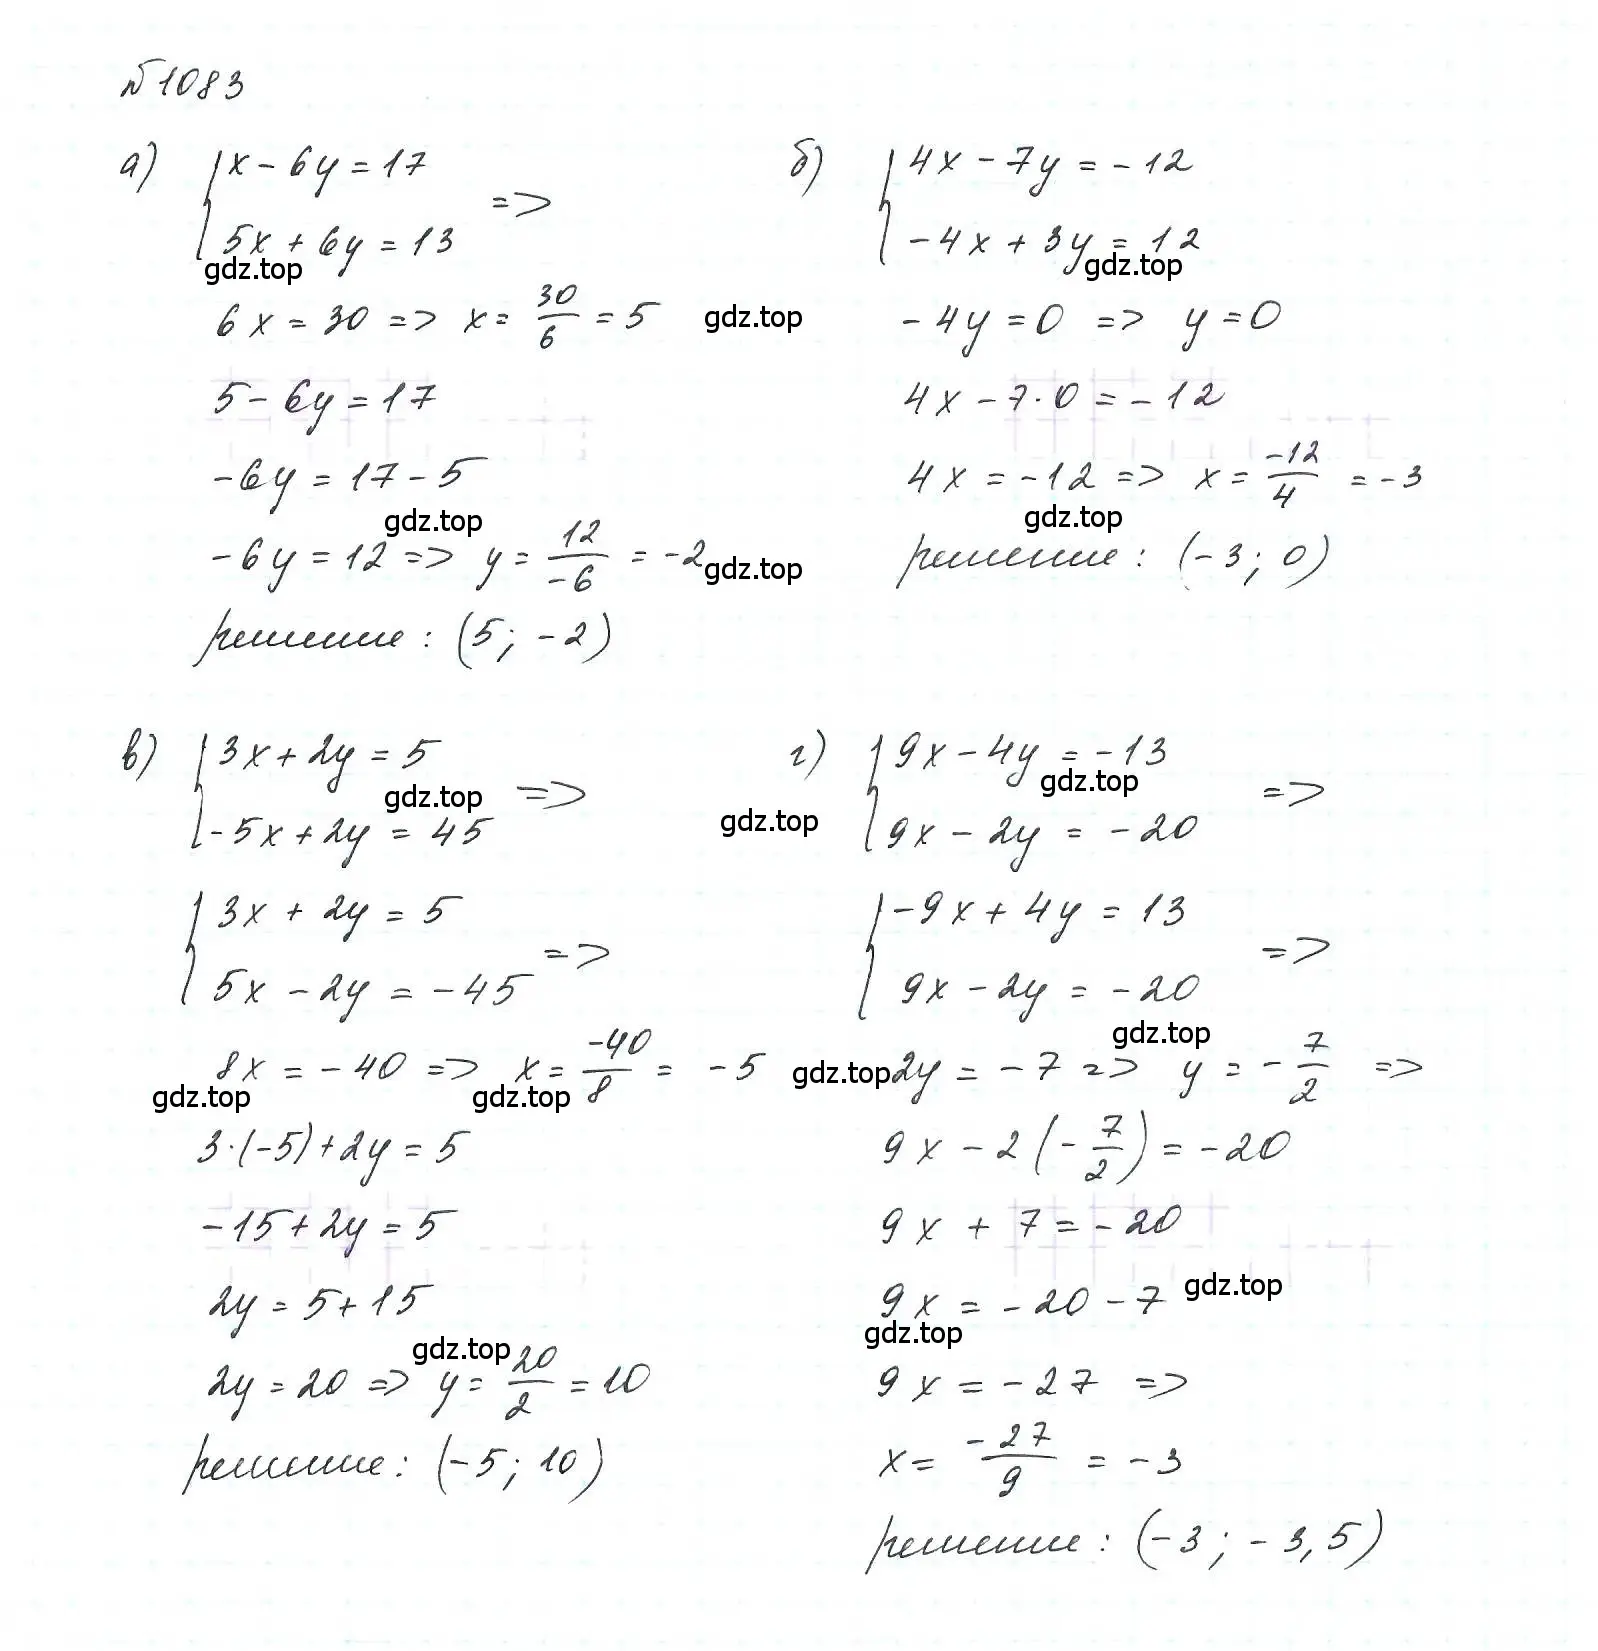 №1083
а) { x - 6y = 17
5x + 6y = 13 =>
gdz.top
6x = 30 => x = 30/6 = 5
gdz.top
5 - 6y = 17
-6y = 17 - 5
gdz.top
-6y = 12 => y = 12/-6 = -2
gdz.top
решение: (5; -2)
б) { 4x - 7y = -12
-4x + 3y = 12
gdz.top
-4y = 0 => y = 0
4x - 7·0 = -12
4x = -12 => x = -12/4 = -3
gdz.top
решение: (-3; 0)
в) { 3x + 2y = 5
gdz.top
-5x + 2y = 45 =>
{ 3x + 2y = 5
5x - 2y = -45 =>
8x = -40 => x = -40/8 = -5
gdz.top gdz.top
3·(-5) + 2y = 5
-15 + 2y = 5
2y = 5 + 15
gdz.top
2y = 20 => y = 20/2 = 10
решение: (-5; 10)
г) { 9x - 4y = -13
gdz.top
gdz.top
9x - 2y = -20 =>
{ -9x + 4y = 13
9x - 2y = -20 =>
gdz.top
gdz.top
2y = -7 => y = -7/2 =>
9x - 2(-7/2) = -20
9x + 7 = -20
9x = -20 - 7
gdz.top
gdz.top
9x = -27 =>
x = -27/9 = -3
решение: (-3; -3,5)